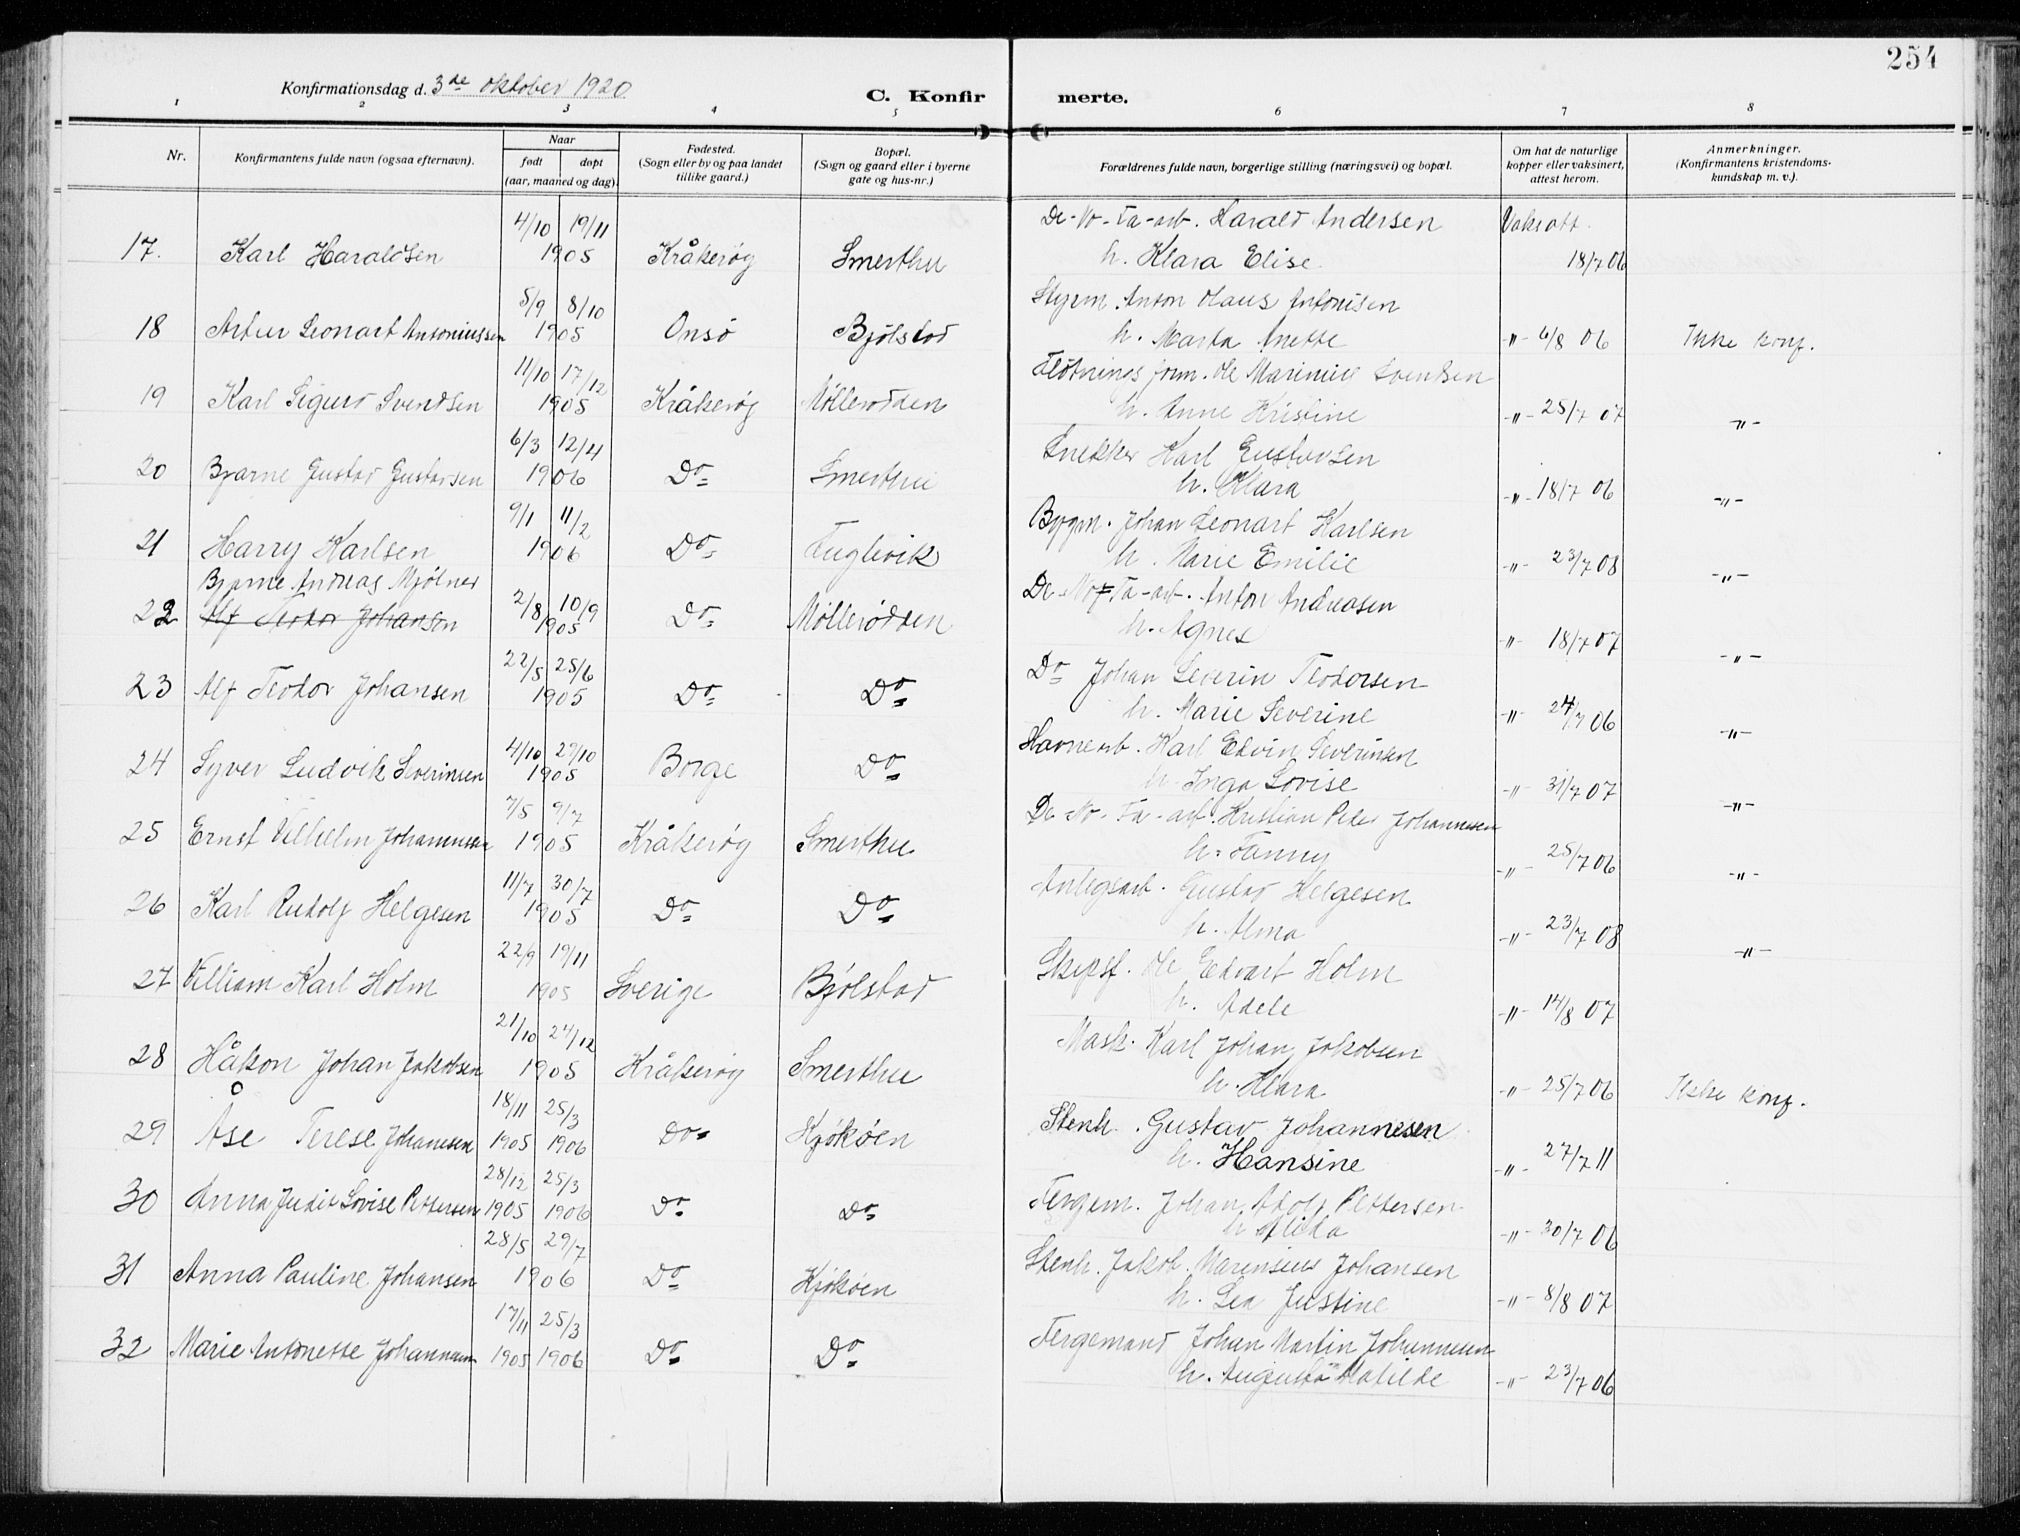 254
Konfirmationsdag d. 3de oktober 1920
C. Konfirmerte.
1 2 3 4 5 6 7 8
Nr.
Konfirmantens fulde navn (ogsaa efternavn).
Naar
født døpt
(aar, maaned og dag).
Fødested.
(Sogn eller by og paa landet
tillike gaard.)
Bopæl.
(Sogn og gaard eller i byerne
gate og hus-nr.)
Forældrenes fulde navn, borgerlige stilling (næringsvei) og bopæl.
Om hat de naturlige
kopper eller vaksinert,
attest herom.
Anmerkninger.
(Konfirmantens kristendoms-
kundskap m. v.).
4/10 19/11 De-No-Fa-arb. Harald Andersen Vaksatt.
17. Karl Haraldsen 1905 Kråkerøy Smerthu h. Klara Elise 18/7 06
5/9 8/10 Styrm. Anton Olaus Antonisen
18 Artur Leonart Antoniussen 1905 Onsö Bjölstad h. Marta Anette -"- 6/8 06 Ikke konf.
11/10 17/12 Flötnings form. Ole Marinius Svendsen
19 Karl Sigurd Svendsen 1905 Kråkerøy Møllerodden h. Anne Kristine -"- 25/7 07 -"-
6/3 12/4 Snekker Karl Gustavsen
20 Bjarne Gustav Gustavsen 1906 Do Smerthu h. Klara -"- 18/7 06 -"-
9/1 11/2 Bygm. Johan Leonart Karlsen
21 Harry Karlsen 1906 Do Fuglevik h. Marie Emilie -"- 23/7 08 -"-
Bjarne Andreas Mjölner
2/8 10/9 De-No-Fa-arb. Anton Andreasen
22 Alf Teodor Johansen 1905 Do Møllerodden h. Agnes -"- 18/7 07 -"-
22/5 25/6 Do Johan Severin Teodorsen
23 Alf Teodor Johansen 1905 Do Do h. Marie Severine -"- 24/7 06 -"-
4/10 29/10 Havnearb. Karl Edvin Severinsen
24 Syver Ludvik Severinsen 1905 Borge Do h. Inga Lovise -"- 31/7 07 -"-
7/5 9/7 De-No-Fa-arb. Kristian Peder Johannesen
25 Ernst Vilhelm Johannesen 1905 Kråkerøy Smerthu h. Fanny -"- 25/7 06 -"-
11/7 30/7 Anlegsarb. Gustav Helgesen
26 Karl Rudolf Helgesen 1905 Do Do h. Alma -"- 23/7 08 -"-
22/9 19/11 Skipsf. Ole Edvart Holm
27 Villiam Karl Holm 1905 Sverige Bjölstad h. Adele -"- 14/8 07
21/10 24/12 Mask. Karl Johan Jakobsen
28 Håkon Johan Jakobsen 1905 Kråkerøy Smerthu h. Klara -"- 25/7 06 Ikke konf.
18/11 25/3 Stenh. Gustav Johannesen
29 Åse Terese Johannesen 1905 1906 Do Kjököen h. Hansine -"- 27/7 11
28/12 25/3 Fergem. Johan Adolf Pettersen
30 Anna Judit Lovise Pettersen 1905 1906 Do Do h. Alida -"- 30/7 06
28/5 29/7 Stenh. Jakob Marensius Johansen
31 Anna Pauline Johansen 1906 Do Kjököen h. Lea Justine -"- 8/8 07
17/11 25/3 Fergemand Johan Martin Johannesen
32 Marie Antonette Johannesen 1905 1906 Do Do h. Augusta Matilde -"- 23/7 06